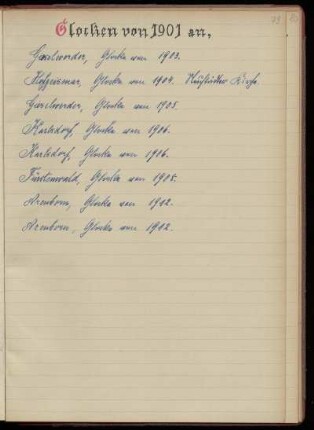 Glocken von 1901 an,
Gieselwerder, Glocke von 1903.
Hofgeismar, Glocke von 1904. Neustädter Kirche.
Gieselwerder, Glocke von 1905.
Karlsdorf, Glocke von 1906.
Karlsdorf, Glocke von 1906.
Fürstenwald, Glocke von 1908.
Arenborn, Glocke von 1912.
Arenborn, Glocke von 1912.